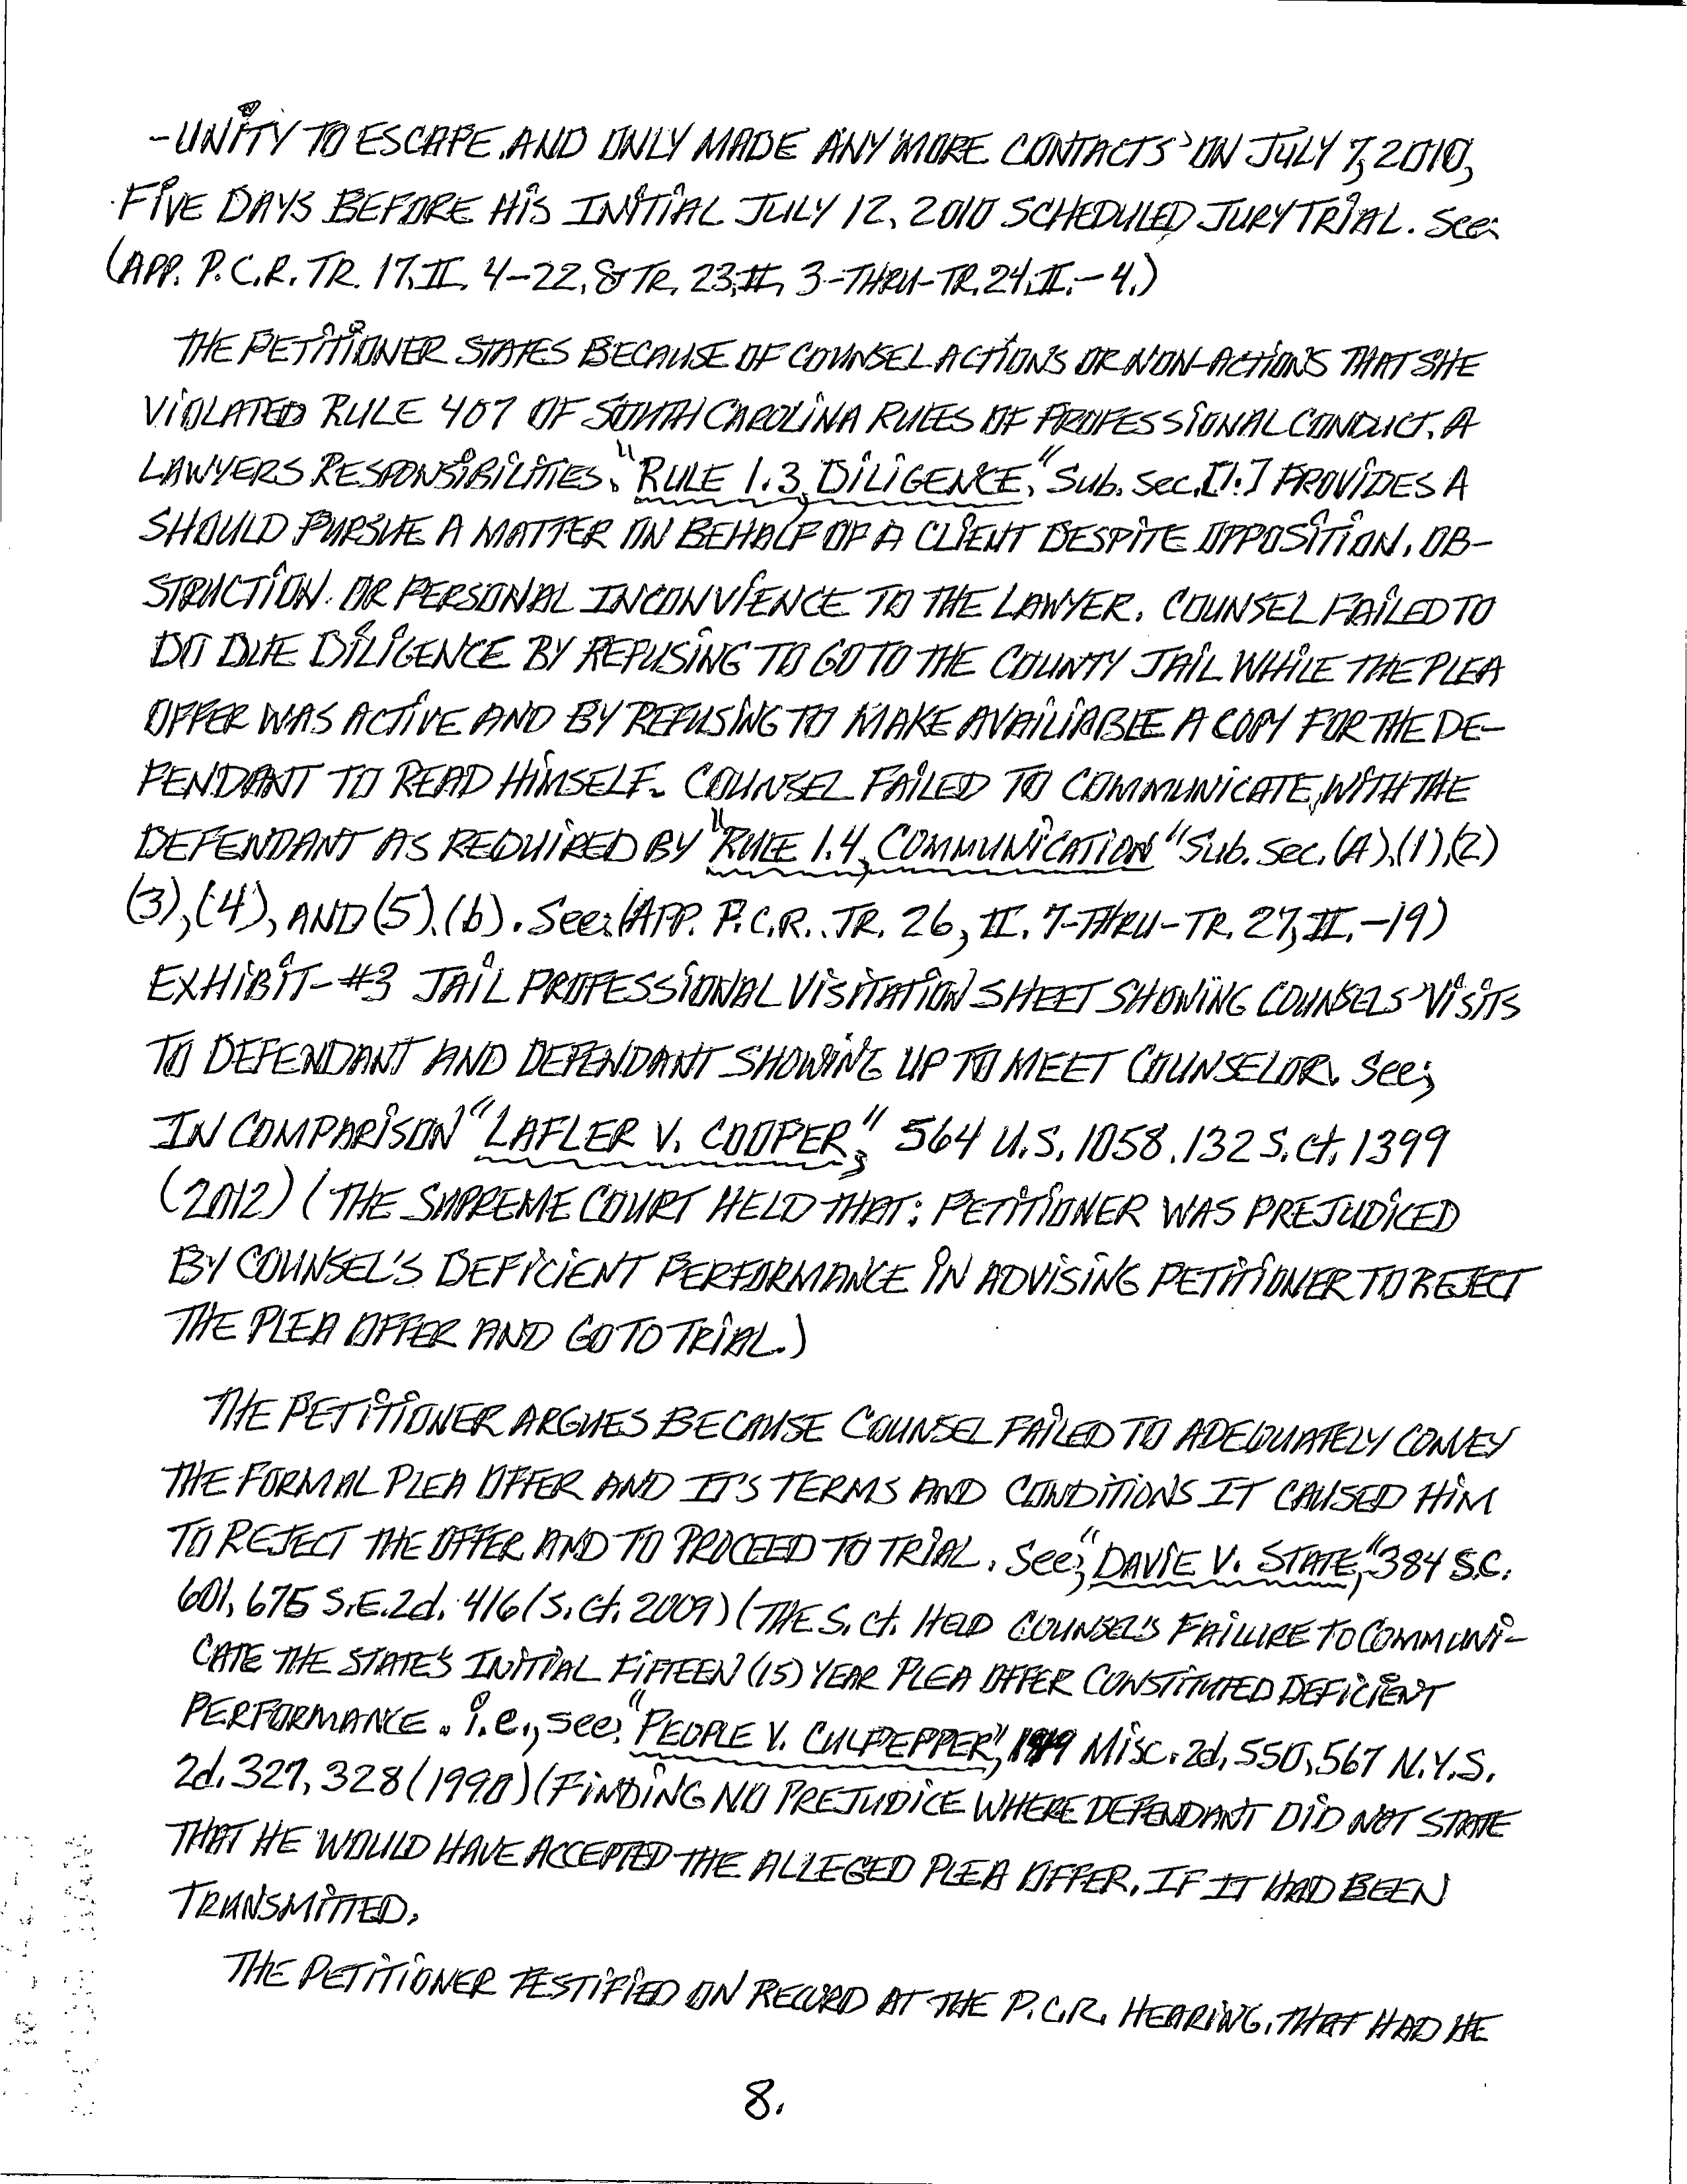 -UNITY TO ESCAPE, AND ONLY MADE ANY "MORE CONTACTS" ON JULY 7, 2010,
FIVE DAYS BEFORE HIS INITIAL JULY 12, 2010 SCHEDULED JURY TRIAL. See:
(APP. P.C.R. TR. 17, II. 4-22, & TR. 23, II, 3-THRU-TR. 24, II.-4.)
THE PETITIONER STATES BECAUSE OF COUNSEL ACTIONS OR NON-ACTIONS THAT SHE
VIOLATED RULE 407 OF SOUTH CAROLINA RULES OF PROFESSIONAL CONDUCT. A
LAWYERS RESPONSIBILITIES, "RULE 1.3, DILIGENCE," Sub. Sec. [1.] PROVIDES A
SHOULD PURSUE A MATTER ON BEHALF OF A CLIENT DESPITE OPPOSITION, OB-
STRUCTION. OR PERSONAL INCONVIENCE TO THE LAWYER. COUNSEL FAILED TO
DO DUE DILIGENCE BY REFUSING TO GO TO THE COUNTY JAIL WHILE THE PLEA
OFFER WAS ACTIVE AND BY REFUSING TO MAKE AVAILIABLE A COPY FOR THE DE-
FENDANT TO READ HIMSELF. COUNSEL FAILED TO COMMUNICATE, WITH THE
DEFENDANT AS REQUIRED BY "RULE 1.4, COMMUNICATION" Sub. Sec. (A),(1),(2)
(3),(4), AND (5),(b). See: (APP. P.C.R. TR. 26, II. 7-THRU-TR. 27, II.-19)
EXHIBIT-#3 JAIL PROFESSIONAL VISITATION SHEET SHOWING COUNSELS' VISITS
TO DEFENDANT AND DEFENDANT SHOWING UP TO MEET COUNSELOR. See;
IN COMPARISON "LAFLER V. COOPER," 564 U.S. 1058, 132 S.Ct. 1399
(2012) (THE SUPREME COURT HELD THAT: PETITIONER WAS PREJUDICED
BY COUNSEL'S DEFICIENT PERFORMANCE IN ADVISING PETITIONER TO REJECT
THE PLEA OFFER AND GO TO TRIAL.)
THE PETITIONER ARGUES BECAUSE COUNSEL FAILED TO ADEQUATELY CONVEY
THE FORMAL PLEA OFFER AND IT'S TERMS AND CONDITIONS IT CAUSED HIM
TO REJECT THE OFFER AND TO PROCEED TO TRIAL. See; "DAVIE V. STATE," 384 S.C.
601, 675 S.E.2d. 416 (S.Ct. 2009) (THE S.Ct. HELD COUNSEL'S FAILURE TO COMMUNI-
CATE THE STATE'S INITIAL FIFTEEN (15) YEAR PLEA OFFER CONSTITUTED DEFICIENT
PERFORMANCE. i.e., see: "PEOPLE V. CULPEPPER," Misc. 2d, 550, 567 N.Y.S.
2d. 327, 328 (1990) (FINDING NO PREJUDICE WHERE DEFENDANT DID NOT STATE
THAT HE WOULD HAVE ACCEPTED THE ALLEGED PLEA OFFER, IF IT HAD BEEN
TRANSMITTED.
THE PETITIONER TESTIFIED ON RECORD AT THE P.C.R. HEARING, THAT HAD HE
8.